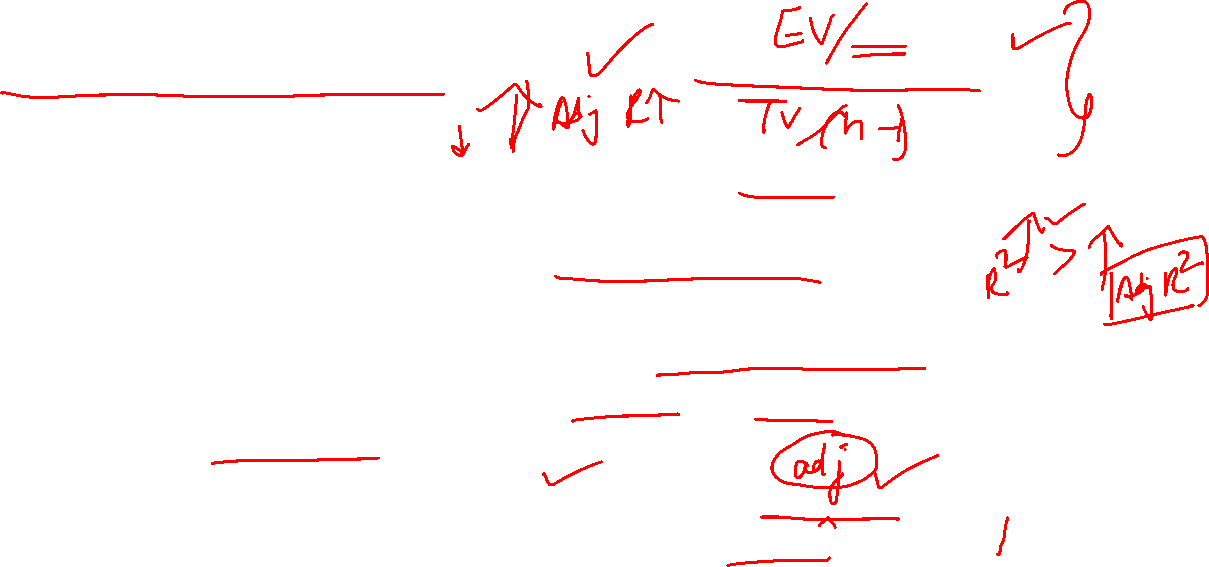 EV/
Adj R↑
TV/(n-1)
R² > Adj R²
adj